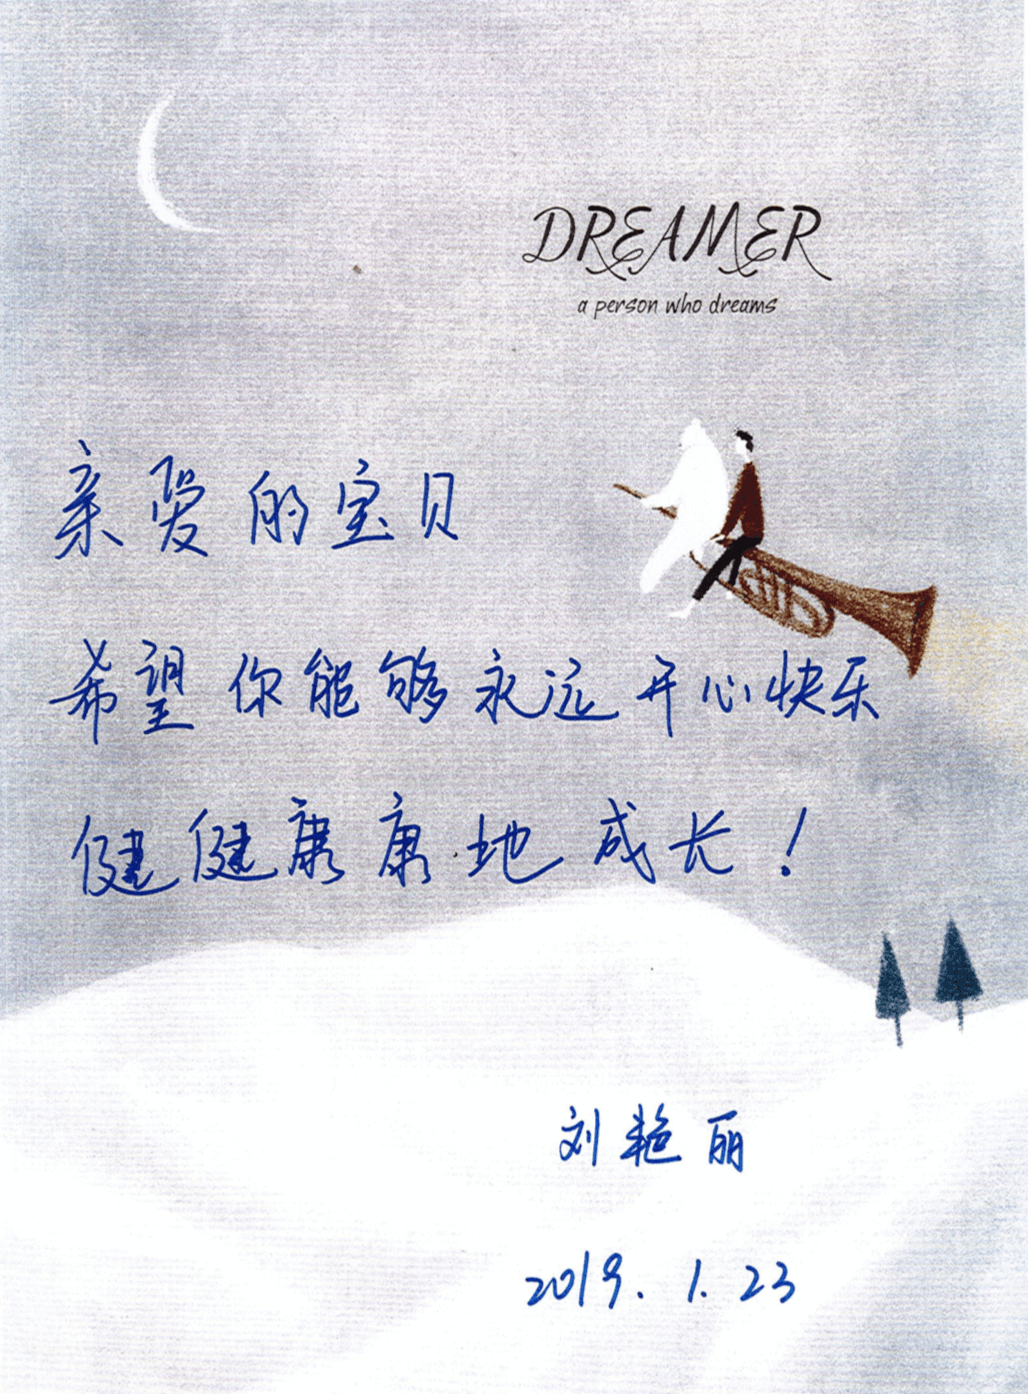 DREAMER
a person who dreams
亲爱的宝贝
希望你能够永远开心快乐
健健康康地成长！
刘艳丽
2019.1.23